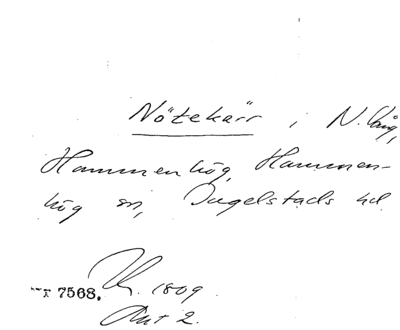 Nötekärr i N. Väng,
Hammenhög, Hammen-
hög sn, Ingelstads hd
7568. 1809
Akt 2.